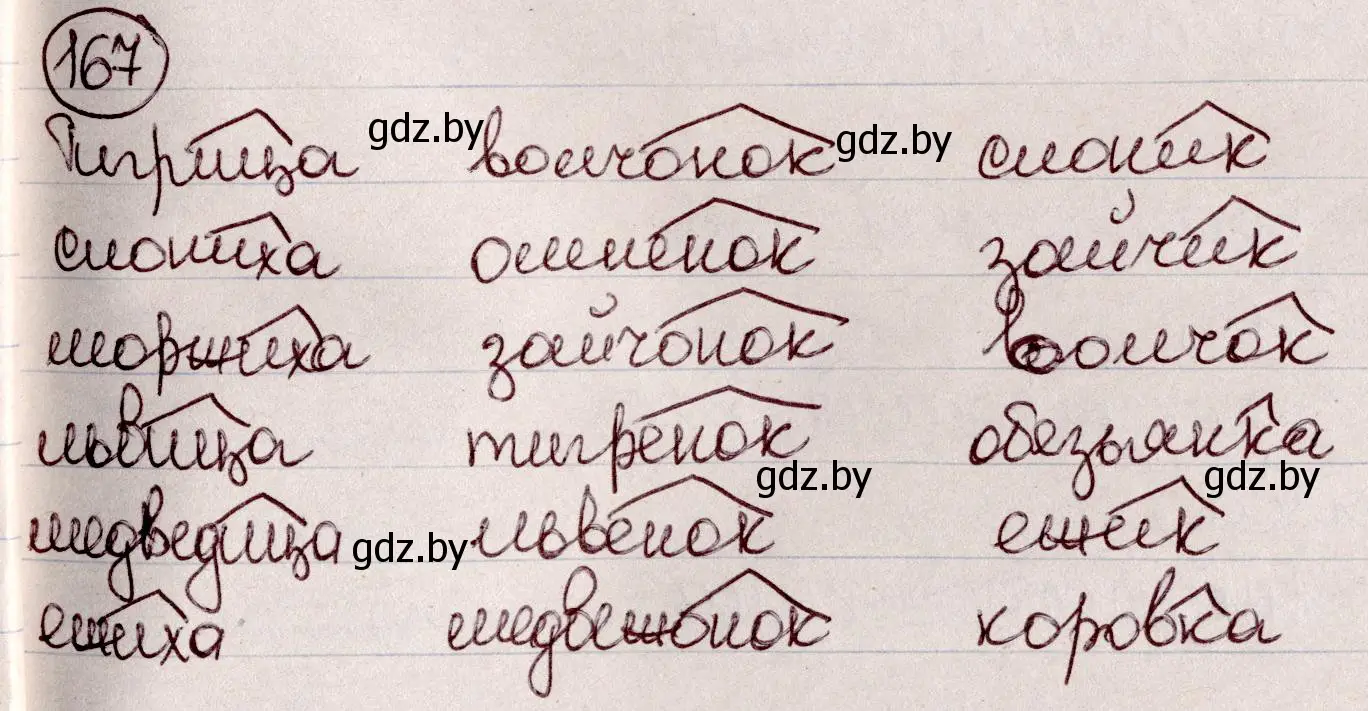 167
Тигрица волчонок слоник
слониха оленёнок зайчик
моржиха зайчонок волчок
львица тигрёнок обезьянка
медведица львёнок ежик
ежиха медвежонок коровка
gdz.by
gdz.by
gdz.by
gdz.by
gdz.by